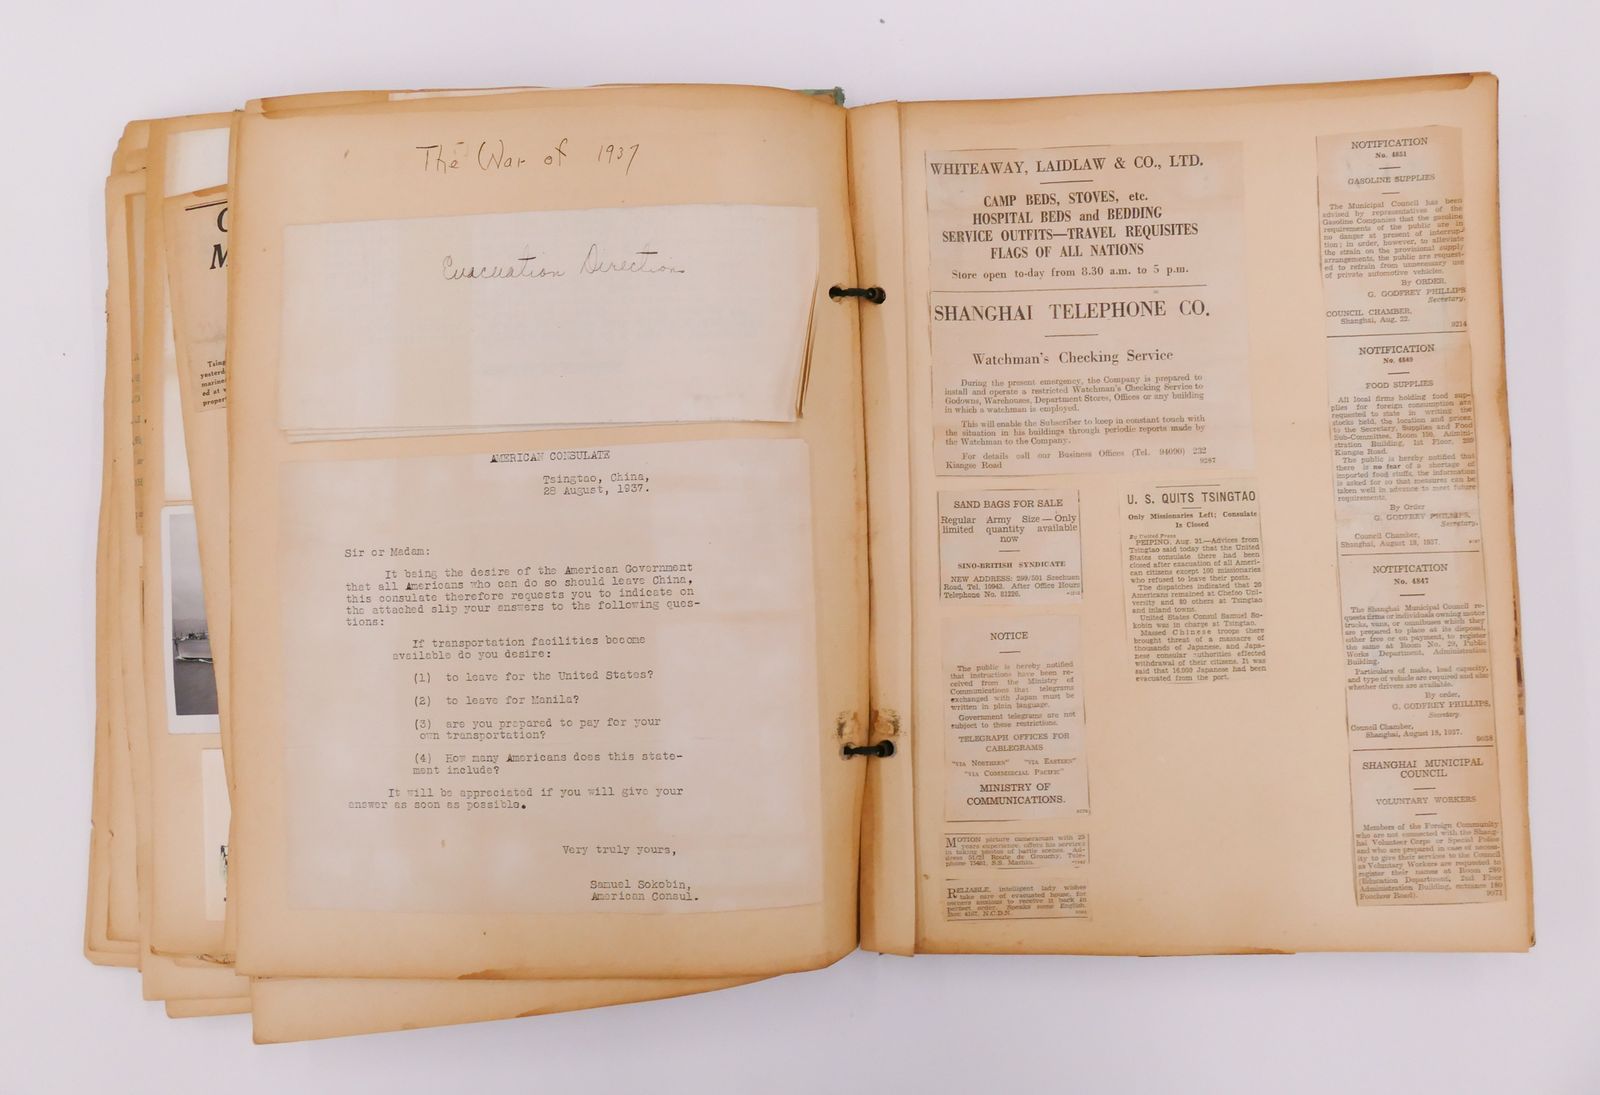 The War of 1937
Evacuation Direction
AMERICAN CONSULATE
Tsingtao, China,
28 August, 1937.
Sir or Madam:
It being the desire of the American Government
that all Americans who can do so should leave China,
this consulate therefore requests you to indicate on
the attached slip your answers to the following ques-
tions:
If transportation facilities become
available do you desire:
(1) to leave for the United States?
(2) to leave for Manila?
(3) are you prepared to pay for your
own transportation?
(4) How many Americans does this state-
ment include?
It will be appreciated if you will give your
answer as soon as possible.
Very truly yours,
Samuel Sokobin,
American Consul.
Tsing
yesterd
marine
ed at
proper
WHITEAWAY, LAIDLAW & CO., LTD.
CAMP BEDS, STOVES, etc.
HOSPITAL BEDS and BEDDING
SERVICE OUTFITS—TRAVEL REQUISITES
FLAGS OF ALL NATIONS
Store open to-day from 8.30 a.m. to 5 p.m.
SHANGHAI TELEPHONE CO.
Watchman's Checking Service
During the present emergency, the Company is prepared to
install and operate a restricted Watchman's Checking Service to
Godowns, Warehouses, Department Stores, Offices or any building
in which a watchman is employed.
This will enable the Subscriber to keep in constant touch with
the situation in his buildings through periodic reports made by
the Watchman to the Company.
For details call our Business Offices (Tel. 94090) 232
Kiangse Road 9287
SAND BAGS FOR SALE
Regular Army Size—Only
limited quantity available
now
SINO-BRITISH SYNDICATE
NEW ADDRESS: 299/501 Szechuen
Road, Tel. 10943. After Office Hours
Telephone No. 81226.
NOTICE
The public is hereby notified
that instructions have been re-
ceived from the Ministry of
Communications that telegrams
exchanged with Japan must be
written in plain language.
Government telegrams are not
subject to these restrictions.
TELEGRAPH OFFICES FOR
CABLEGRAMS
"VIA NORTHERN" "VIA EASTERN"
"VIA COMMERCIAL PACIFIC"
MINISTRY OF
COMMUNICATIONS.
MOTION picture cameraman with 25
years experience, offers his services
in taking photos of battle scenes. Ad-
dress 51/21 Route de Grouchy, Tele-
phone 75481, S.S. Martin.
RELIABLE, intelligent lady wishes
take care of evacuated house, for
owners anxious to receive it back in
perfect order. Speaks some English.
Box 4167, N.C.D.N.
U. S. QUITS TSINGTAO
Only Missionaries Left; Consulate
Is Closed
By United Press
PEIPING, Aug. 31.—Advices from
Tsingtao said today that the United
States consulate there had been
closed after evacuation of all Ameri-
can citizens except 100 missionaries
who refused to leave their posts.
The dispatches indicated that 20
Americans remained at Chefoo Uni-
versity and 80 others at Tsingtao
and inland towns.
United States Consul Samuel So-
kobin was in charge at Tsingtao.
Massed Chinese troops there
brought threat of a massacre of
thousands of Japanese, and Japa-
nese consular authorities effected
withdrawal of their citizens. It was
said that 16,000 Japanese had been
evacuated from the port.
NOTIFICATION
No. 4851
GASOLINE SUPPLIES
The Municipal Council has been
advised by representatives of the
Gasoline Companies that the gasoline
requirements of the public are in
no danger at present of interrup-
tion; in order, however, to alleviate
the strain on the provisional supply
arrangements, the public are request-
ed to refrain from unnecessary use
of private automotive vehicles.
By ORDER,
G. GODFREY PHILLIPS
Secretary.
COUNCIL CHAMBER,
Shanghai, Aug. 22. 9214
NOTIFICATION
No. 4849
FOOD SUPPLIES
All local firms holding food sup-
plies for foreign consumption are
requested to state in writing the
stocks held, the location and prices,
to the Secretary, Supplies and Food
Sub-Committee, Room 190, Admini-
stration Building, 1st Floor, 209
Kiangse Road.
The public is hereby notified that
there is no fear of a shortage of
imported food stuffs, the information
is asked for so that measures can be
taken well in advance to meet future
requirements.
By Order
G. GODFREY PHILLIPS,
Secretary.
Council Chamber,
Shanghai, August 18, 1937.
NOTIFICATION
No. 4847
The Shanghai Municipal Council re-
quests firms or individuals owning motor
trucks, vans, or omnibuses which they
are prepared to place at its disposal,
either free or on payment, to register
the same at Room No. 29, Public
Works Department, Administration
Building.
Particulars of make, load capacity,
and type of vehicle are required and also
whether drivers are available.
By order,
G. GODFREY PHILLIPS,
Secretary.
Council Chamber,
Shanghai, August 18, 1937. 9038
SHANGHAI MUNICIPAL
COUNCIL
VOLUNTARY WORKERS
Members of the Foreign Community
who are not connected with the Shang-
hai Volunteer Corps or Special Police
and who are prepared in case of necess-
ity to give their services to the Council
as Voluntary Workers are requested to
register their names at Room 280
(Education Department, 2nd Floor
Administration Building, entrance 180
Foochow Road). 9071